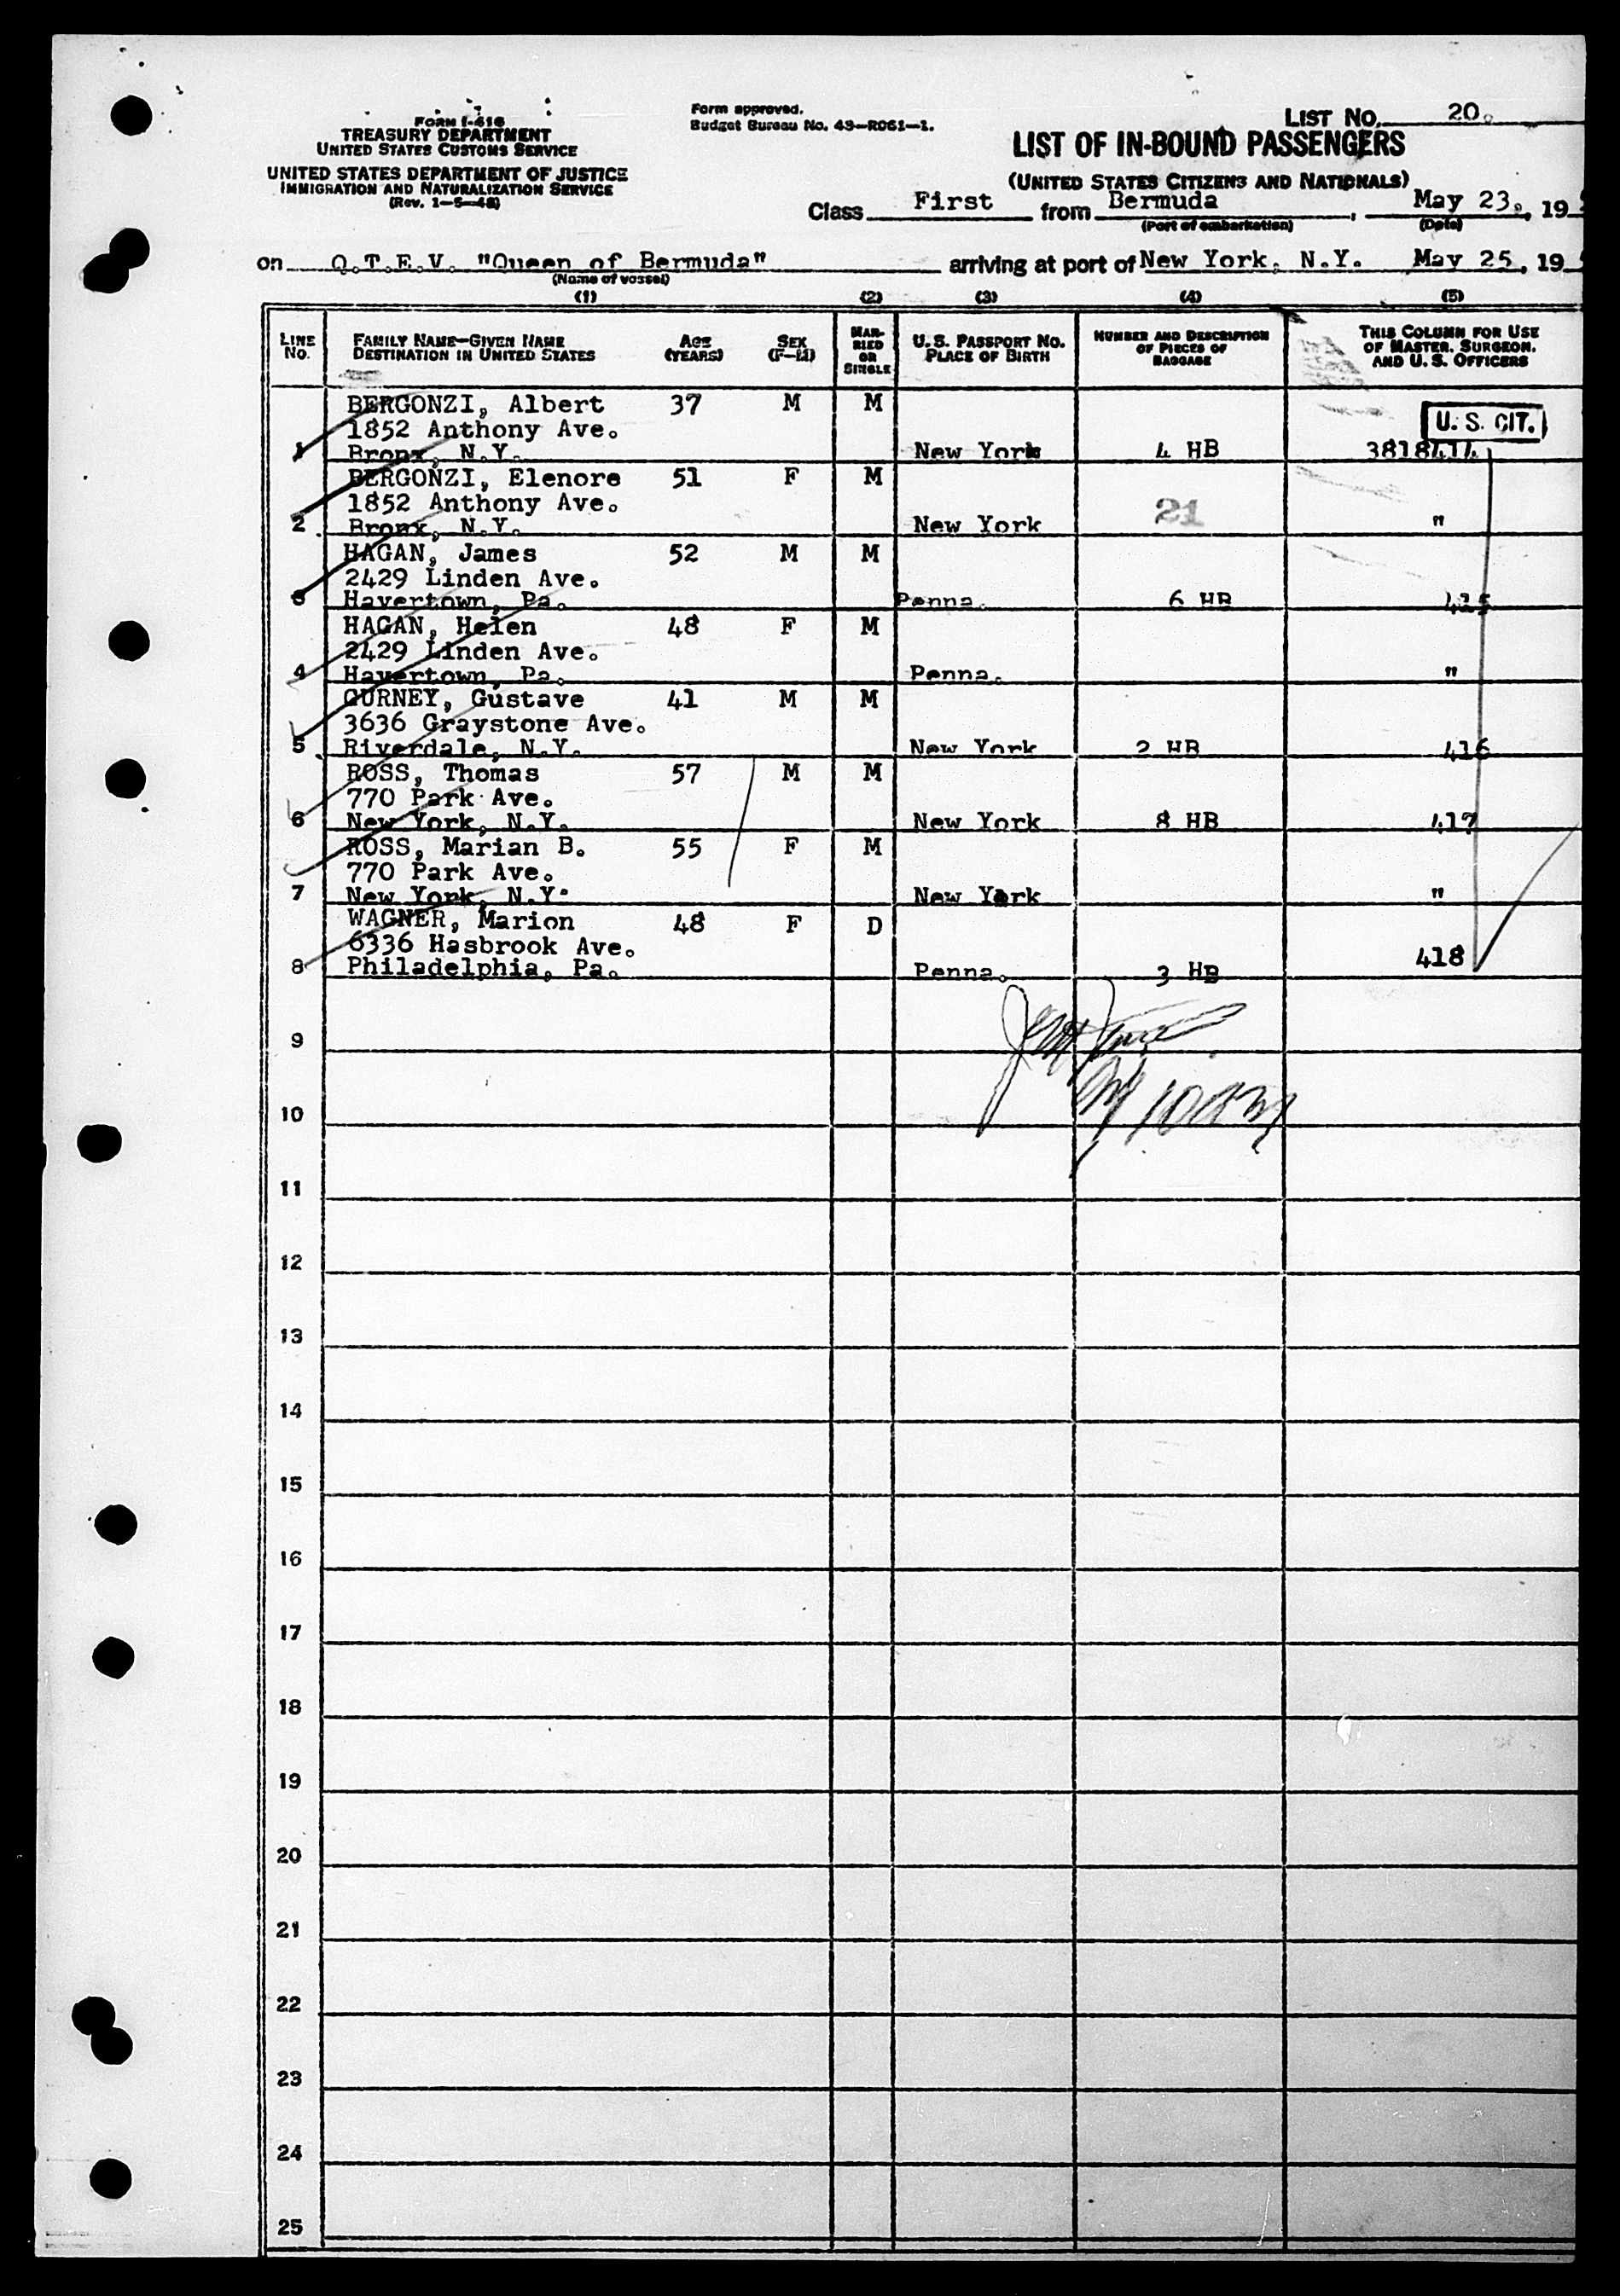 FORM I-418
TREASURY DEPARTMENT
UNITED STATES CUSTOMS SERVICE
UNITED STATES DEPARTMENT OF JUSTICE
IMMIGRATION AND NATURALIZATION SERVICE
(Rev. 1-5-48)
Form approved.
Budget Bureau No. 43-R061-1.
LIST NO. 20.
LIST OF IN-BOUND PASSENGERS
(UNITED STATES CITIZENS AND NATIONALS)
Class First from Bermuda, May 23., 19
(Port of embarkation) (Date)
on Q.T.E.V. "Queen of Bermuda" arriving at port of New York, N.Y. May 25, 19
(Name of vessel)
(1) (2) (3) (4) (5)
LINE No. FAMILY NAME—GIVEN NAME DESTINATION IN UNITED STATES AGE (YEARS) SEX (F-M) MARRIED OR SINGLE U.S. PASSPORT NO. PLACE OF BIRTH NUMBER AND DESCRIPTION OF PIECES OF BAGGAGE THIS COLUMN FOR USE OF MASTER, SURGEON, AND U.S. OFFICERS
BERGONZI, Albert 37 M M
1852 Anthony Ave. U.S. CIT.
1 Bronx, N.Y. New York 4 HB 3818414
BERGONZI, Elenore 51 F M
1852 Anthony Ave. 21
2 Bronx, N.Y. New York "
HAGAN, James 52 M M
2429 Linden Ave.
3 Havertown, Pa. Penna. 6 HB 415
HAGAN, Helen 48 F M
2429 Linden Ave.
4 Havertown, Pa. Penna. "
GURNEY, Gustave 41 M M
3636 Graystone Ave.
5 Riverdale, N.Y. New York 2 HB 416
ROSS, Thomas 57 M M
770 Park Ave.
6 New York, N.Y. New York 8 HB 417
ROSS, Marian B. 55 F M
770 Park Ave.
7 New York, N.Y. New York "
WAGNER, Marion 48 F D
6336 Hasbrook Ave.
8 Philadelphia, Pa. Penna. 3 HB 418
9
10
11
12
13
14
15
16
17
18
19
20
21
22
23
24
25